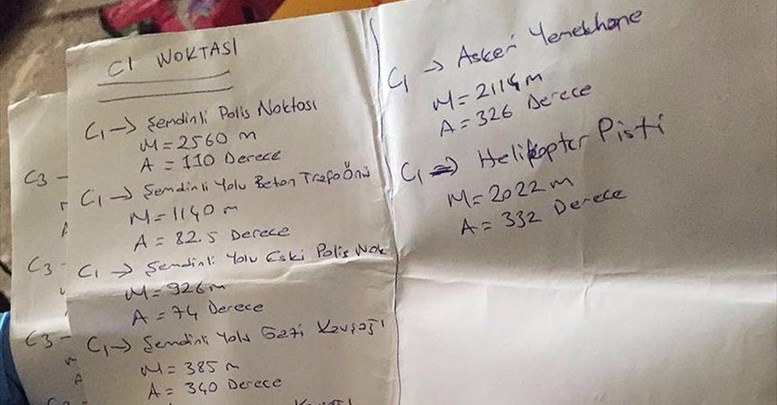 C1 NOKTASI
C1 → Şemdinli Polis Noktası
M = 2560 m
A = 110 Derece
C1 → Şemdinli Yolu Beton Trafo Önü
M = 1140 m
A = 82.5 Derece
C1 → Şemdinli Yolu Eski Polis Nok
M = 926 m
A = 74 Derece
C1 → Şemdinli Yolu Gezi Kavşağı
M = 385 m
A = 340 Derece
C1 → Askeri Yemekhane
M = 2114 m
A = 326 Derece
C1 → Helikopter Pisti
M = 2022 m
A = 332 Derece
C3 -
C3 -
C3 -